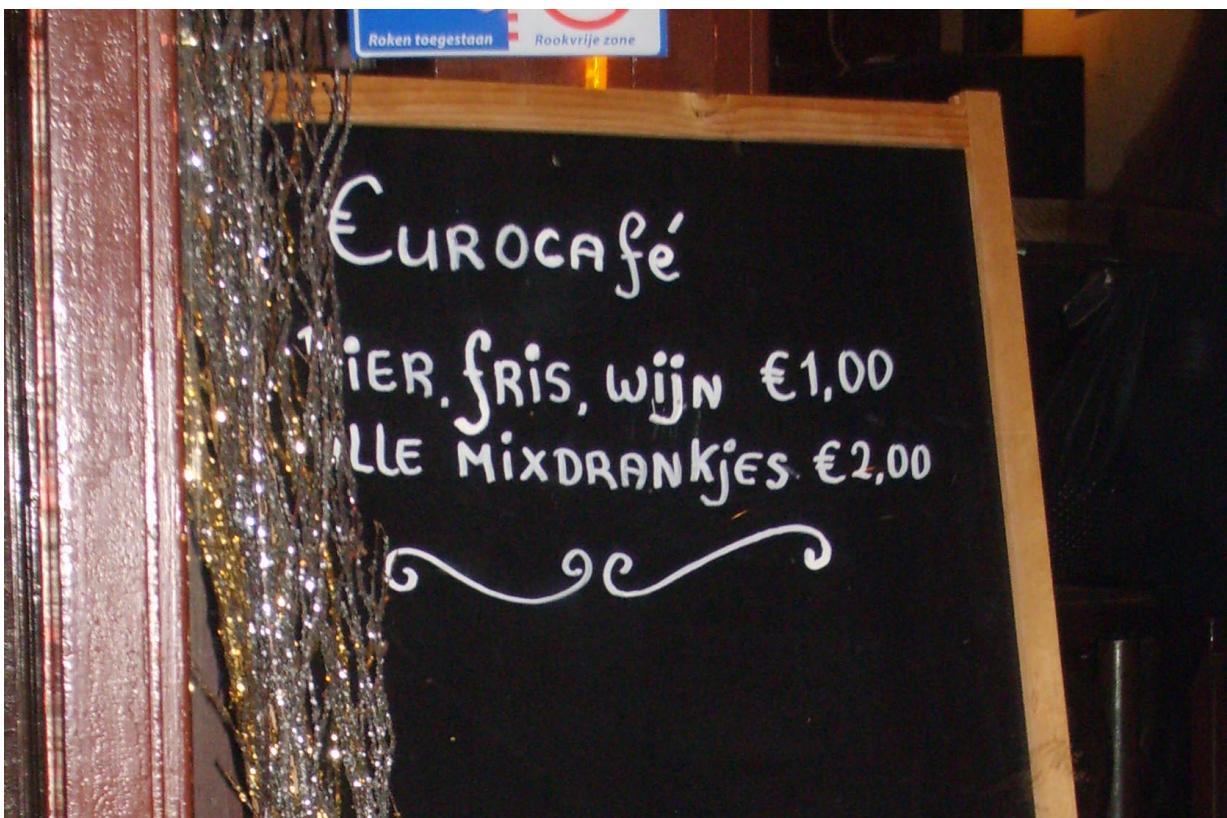 Roken toegestaan Rookvrije zone
€urocafé
ier, fris, wijn €1,00
lle mixdrankjes €2,00